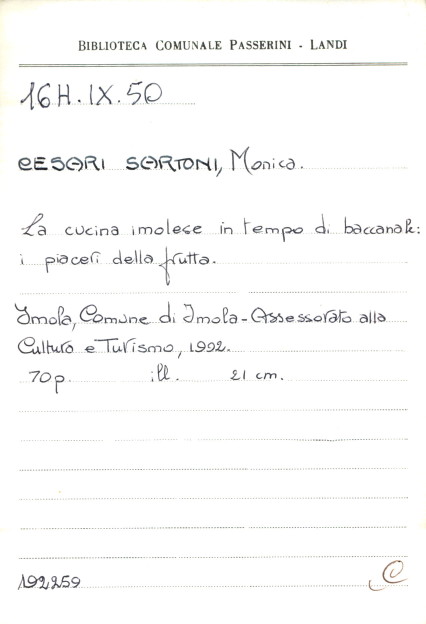 BIBLIOTECA COMUNALE PASSERINI - LANDI
16H.IX.50
CESARI SARTONI, Monica.
La cucina imolese in tempo di baccanale:
i piaceri della frutta.
Imola, Comune di Imola - Assessorato alla
Cultura e Turismo, 1992.
70p. ill. 21 cm.
192259